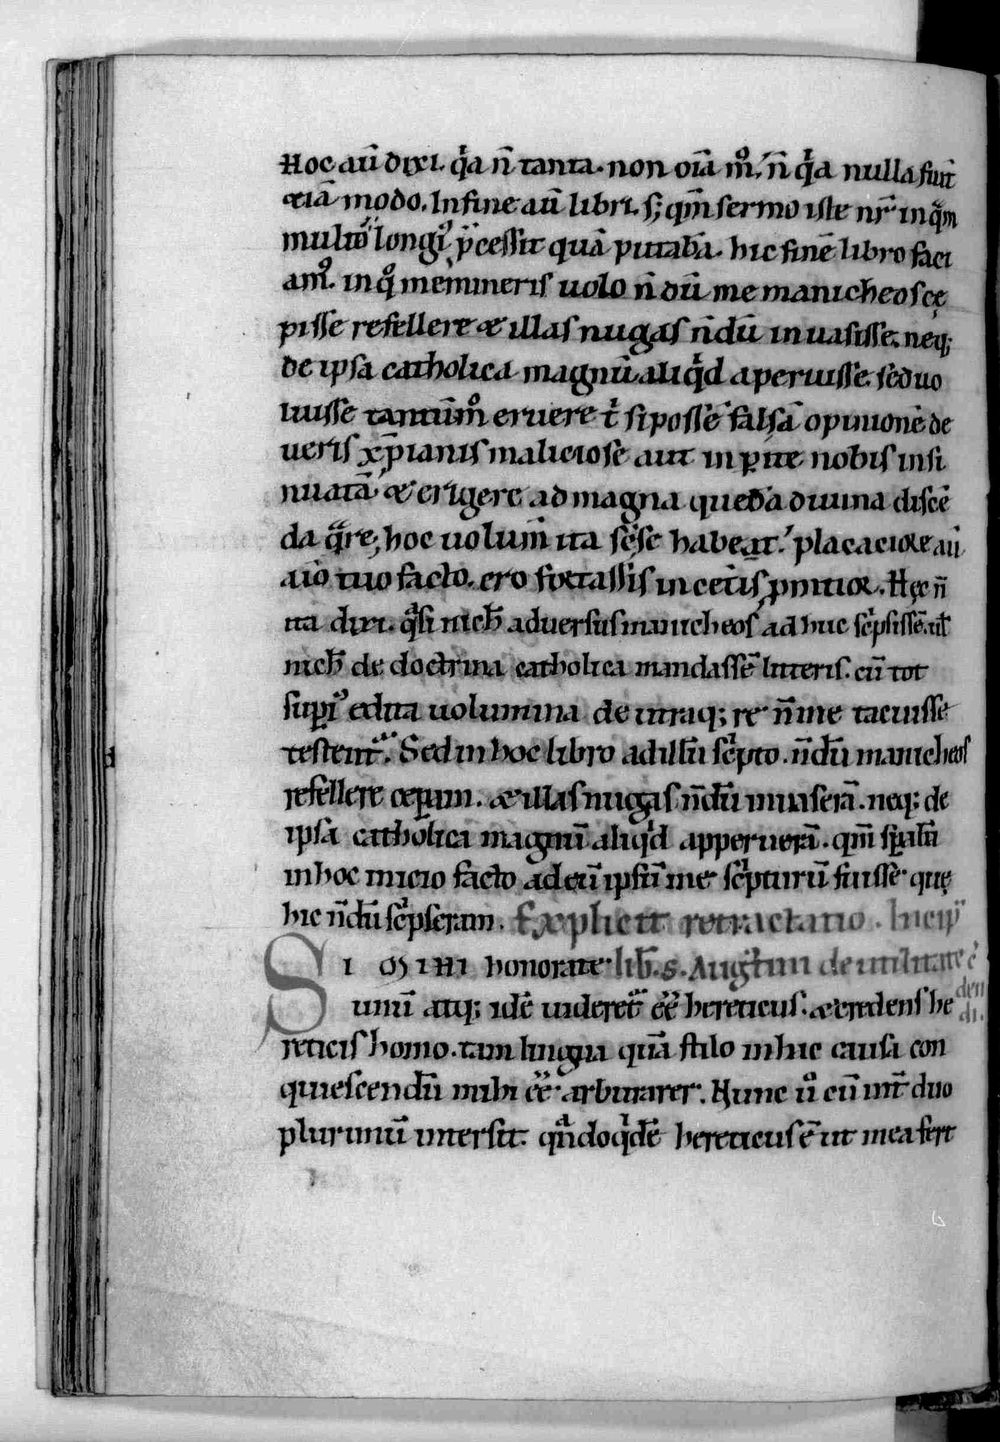 Hoc aū dixi. qͥa n̄ tanta. non oīa mͦ. n̄ qͥa nulla sunt̄
etiā modo. In fine aū libri. s; qm̄ sermo iste nr̄ in qͣm
multo longi᷒ p̄cessit quā putabā. hic finē libro faci
am᷒. in qͦ memineris uolo n̄ dū me manicheos cę
pisse refellere et illas nugas n̄dū inuasisse. neq;
de ipsa catholica magnū aliqͥd aperuisse. sed uo
luisse tantūmͦ eruere t̄ si possē falsā opinionē de
ueris xp̄ianis maliciose aut inꝑite nobis insi
nuatā. et erigere ad magna quedā diuina discē
da qͣre hoc uolum̄ ita sese habeat. placaciore aū
aīo tuo facto. ero fortassis in cet̄is ꝓmtior. Hęc n̄
ita dixi. qͣsi nich̄ aduersus manicheos ad huc sc̓psissē. ul̄
nich̄ de doctrina catholica mandassē litteris. cū tot
suꝑi᷒ edita uolumina de utraq; re n̄ me tacuisse
testent᷑. Sed in hoc libro ad illū sc̓pto. n̄dū manicheos
refellere ceꝑam. et illas nugas n̄dū inuaserā. neq; de
ipsa catholica magnū aliqͥd apperuerā. qm̄ sꝑabā
inhoc inicio facto ad eū ipsū me sc̓pturū fuisse quę
hic n̄dū sc̓pseram. Explicit retractatio. Incip̄
SI MIHI honorate lib̄. s. Augᷤtini de utilitate c̓
unū atq; idē uideret᷑ ēē hereticus. et credens he den
reticis homo. tam lingua quā stilo inhac causa con di.
quiescendū mihi ēē arbitrarer. Nunc ūͦ cū int̄ duo
plurimū intersit. qͣndoqͥdē hereticus ē ut mea fert